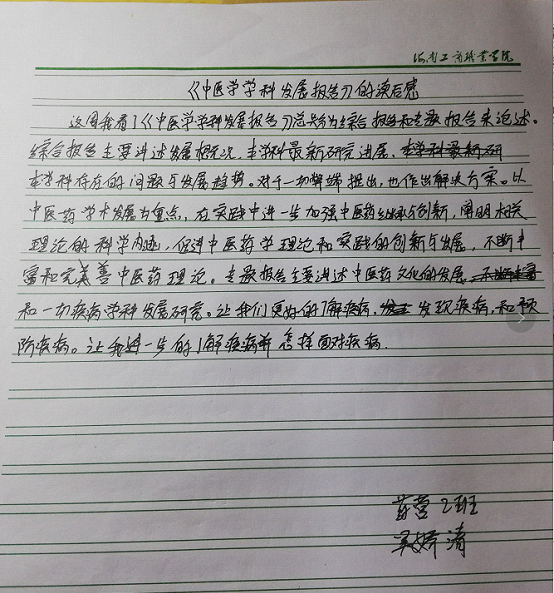 海南工商职业学院
《中医学学科发展报告》的读后感
这周我看了《中医学学科发展报告》总共分为综合报告和专题报告来论述。
综合报告主要讲述发展概况，本学科最新研究进展，本学科最新研
本学科存在的问题与发展趋势。对于一切弊端提出，也作出解决方案。以
中医药学术发展为重点，在实践中进一步加强中医药继承与创新，阐明相关
理论的科学内涵，促进中医药学理论和实践的创新与发展，不断丰
富和完善中医药理论。专题报告主要讲述中医药文化的发展，不断丰富
和一切疾病学科发展研究。让我们更好的了解疾病，发现疾病，和预
防疾病。让我进一步的了解疾病并怎样面对疾病.
药营2班
清